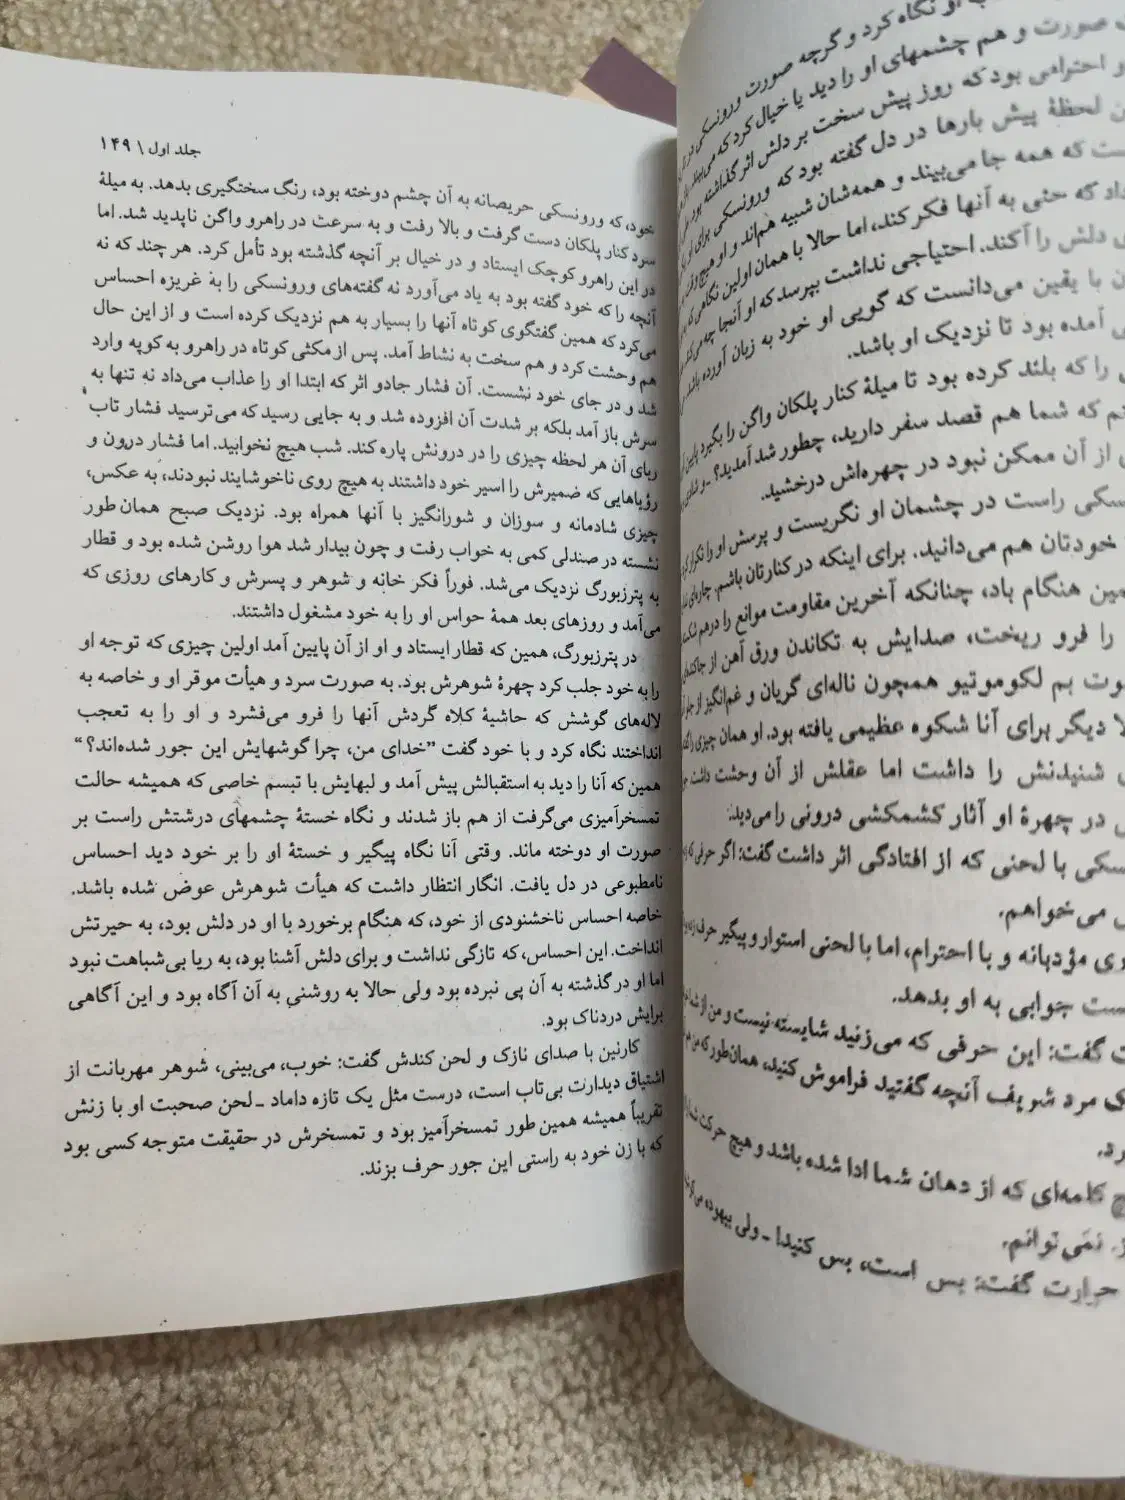 ب او نگاه کرد و گرچه صورت ورونسکی در
صورت و هم چشمهای او را دید یا خیال کرد که می‌بیند
و احترامی بود که روز پیش سخت بر دلش اثر گذاشته بود
لحظهٔ پیش بارها در دل گفته بود که ورونسکی برای او
ست که همه جا می‌بیند و همه‌شان شبیه هم‌اند و او هیچ وقت
داد که حتی به آنها فکر کند، اما حالا با همان اولین نگاهی که
ی دلش را آکند. احتیاجی نداشت بپرسد که او آنجا چه می‌کند
ن با یقین می‌دانست که گویی او خود به زبان آورده باشد
ی آمده بود تا نزدیک او باشد.
را که بلند کرده بود تا میلهٔ کنار پلکان واگن را بگیرد پایین
نم که شما هم قصد سفر دارید، چطور شد آمدید؟ ـ و
از آن ممکن نبود در چهره‌اش درخشید.
سکی راست در چشمان او نگریست و پرسش او را تکرار کرد
خودتان هم می‌دانید. برای اینکه در کنارتان باشم. چاره‌ای
مین هنگام باد، چنانکه آخرین مقاومت موانع را درهم
را فرو ریخت، صدایش به تکاندن ورق آهن از جا
وت بم لکوموتیو همچون ناله‌ای گریان و غم‌انگیز از
لا دیگر برای آنا شکوه عظیمی یافته بود. او همان چیزی را
شنیدنش را داشت اما عقلش از آن وحشت داشت
در چهرهٔ او آثار کشمکشی درونی را می‌دید.
سکی با لحنی که از افتادگی اثر داشت گفت: اگر حرفی که
می‌خواهم.
ری مؤدبانه و با احترام، اما با لحنی استوار و پیگیر حرف
ست جوابی به او بدهد.
ت گفت: این حرفی که می‌زنید شایسته نیست و من از شما
ک مرد شریف آنچه گفتید فراموش کنید، همان‌طور که من هم
رد.
چ کلمه‌ای که از دهان شما ادا شده باشد و هیچ حرکت شما
ز. نمی‌توانم.
حرارت گفت: بس است، بس کنید! ـ ولی بیهوده می
جلد اول \ ۱۴۹
خود، که ورونسکی حریصانه به آن چشم دوخته بود، رنگ سختگیری بدهد. به میلهٔ
سرد کنار پلکان دست گرفت و بالا رفت و به سرعت در راهرو واگن ناپدید شد. اما
در این راهرو کوچک ایستاد و در خیال بر آنچه گذشته بود تأمل کرد. هر چند که نه
آنچه را که خود گفته بود به یاد می‌آورد نه گفته‌های ورونسکی را به غریزه احساس
می‌کرد که همین گفتگوی کوتاه آنها را بسیار به هم نزدیک کرده است و از این حال
هم وحشت کرد و هم سخت به نشاط آمد. پس از مکثی کوتاه در راهرو به کوپه وارد
شد و در جای خود نشست. آن فشار جادو اثر که ابتدا او را عذاب می‌داد نه تنها به
سرش باز آمد بلکه بر شدت آن افزوده شد و به جایی رسید که می‌ترسید فشار تاب
ربای آن هر لحظه چیزی را در درونش پاره کند. شب هیچ نخوابید. اما فشار درون و
رؤیاهایی که ضمیرش را اسیر خود داشتند به هیچ روی ناخوشایند نبودند، به عکس،
چیزی شادمانه و سوزان و شورانگیز با آنها همراه بود. نزدیک صبح همان طور
نشسته در صندلی کمی به خواب رفت و چون بیدار شد هوا روشن شده بود و قطار
به پترزبورگ نزدیک می‌شد. فوراً فکر خانه و شوهر و پسرش و کارهای روزی که
می‌آمد و روزهای بعد همهٔ حواس او را به خود مشغول داشتند.
در پترزبورگ، همین که قطار ایستاد و او از آن پایین آمد اولین چیزی که توجه او
را به خود جلب کرد چهرهٔ شوهرش بود. به صورت سرد و هیأت موقر او و خاصه به
لاله‌های گوشش که حاشیهٔ کلاه گردش آنها را فرو می‌فشرد و او را به تعجب
انداختند نگاه کرد و با خود گفت "خدای من، چرا گوشهایش این جور شده‌اند؟"
همین که آنا را دید به استقبالش پیش آمد و لبهایش با تبسم خاصی که همیشه حالت
تمسخرآمیزی می‌گرفت از هم باز شدند و نگاه خستهٔ چشمهای درشتش راست بر
صورت او دوخته ماند. وقتی آنا نگاه پیگیر و خستهٔ او را بر خود دید احساس
نامطبوعی در دل یافت. انگار انتظار داشت که هیأت شوهرش عوض شده باشد.
خاصه احساس ناخشنودی از خود، که هنگام برخورد با او در دلش بود، به حیرتش
انداخت. این احساس، که تازگی نداشت و برای دلش آشنا بود، به ریا بی‌شباهت نبود
اما او در گذشته به آن پی نبرده بود ولی حالا به روشنی به آن آگاه بود و این آگاهی
برایش دردناک بود.
کارنین با صدای نازک و لحن کندش گفت: خوب، می‌بینی، شوهر مهربانت از
اشتیاق دیدارت بی‌تاب است، درست مثل یک تازه داماد ـ لحن صحبت او با زنش
تقریباً همیشه همین طور تمسخرآمیز بود و تمسخرش در حقیقت متوجه کسی بود
که با زن خود به راستی این جور حرف بزند.